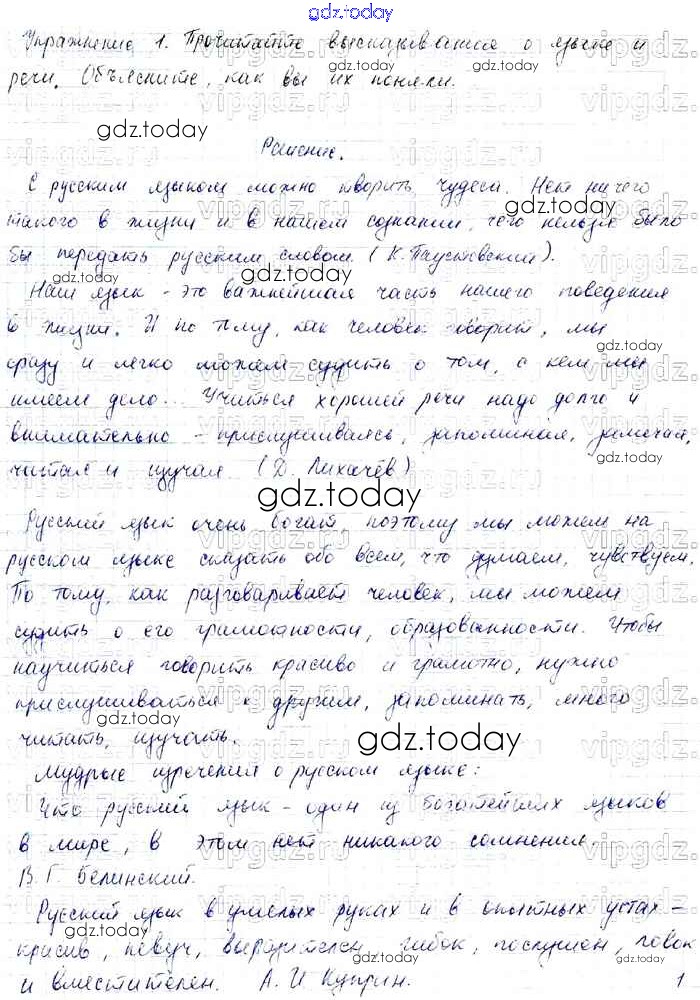 gdz.today
Упражнение 1. Прочитайте высказывания о языке и
речи. Объясните, как вы их поняли.
Решение.
С русским языком можно творить чудеса. Нет ничего
такого в жизни и в нашем сознании, чего нельзя было
бы передать русским словом. (К. Паустовский).
Наш язык - это важнейшая часть нашего поведения
в жизни. И по тому, как человек говорит, мы
сразу и легко можем судить о том, с кем мы
имеем дело... Учиться хорошей речи надо долго и
внимательно - прислушиваясь, запоминая, замечая,
читая и изучая (Д. Лихачёв)
gdz.today
Русский язык очень богат, поэтому мы можем на
русском языке сказать обо всем, что думаем, чувствуем.
По тому, как разговаривает человек, мы можем
судить о его грамотности, образованности. Чтобы
научиться говорить красиво и грамотно, нужно
прислушиваться к другим, запоминать, много
читать, изучать.
gdz.today
Мудрые изречения о русском языке:
Что русский язык - один из богатейших языков
в мире, в этом нет никакого сомнения.
В. Г. Белинский.
Русский язык в умелых руках и в опытных устах -
красив, певуч, выразителен, гибок, послушен, ловок
и вместителен. А. И Куприн.
1